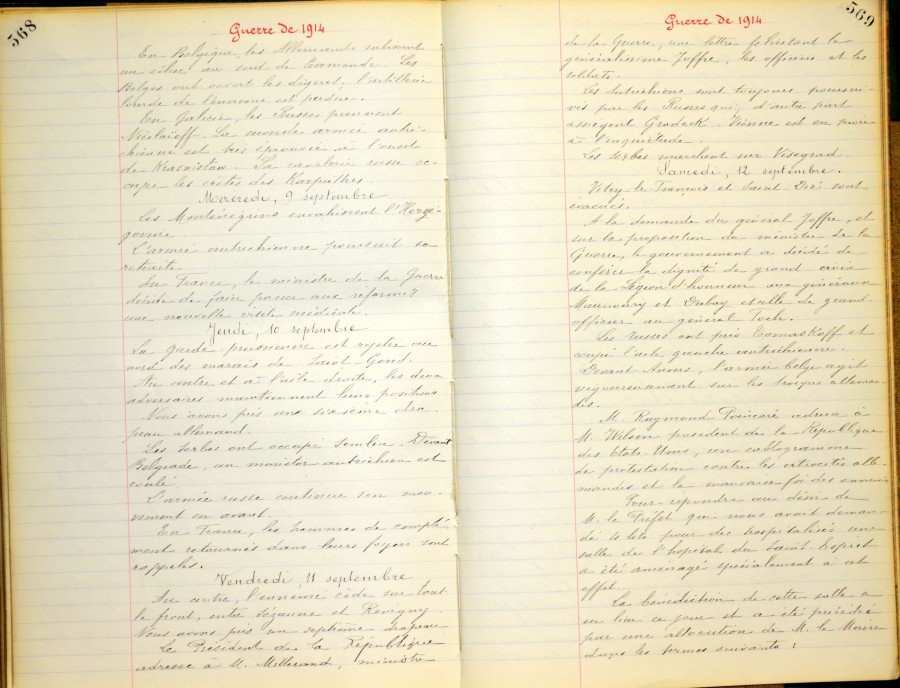 568
Guerre de 1914
En Belgique, les Allemands subissent
un échec au sud de Termonde. Les
Belges ont ouvert les digues; l'artillerie
lourde de l'ennemi est perdue.
En Galicie, les Russes prennent
Nicolaïeff. La monée armée autri-
chienne est très éprouvée à l'ouest
de Krasnistaw. La cavalerie russe oc-
cupe les crêtes des Karpathes.
Mercredi, 9 septembre
Les Monténégrins envahissent l'Herzé-
govine.
L'armée autrichienne poursuit sa
retraite.
En France, le ministre de la Guerre
décide de faire passer aux réformés
une nouvelle visite médicale.
Jeudi, 10 septembre
La garde prussienne est rejetée au
nord des marais de Saint Gond.
Au centre et à l'aile droite, les deux
adversaires maintiennent leurs positions
Nous avons pris un sixième dra-
peau allemand.
Les Serbes ont occupé Semlin. Devant
Belgrade, un monitor autrichien est
coulé.
L'armée russe continue son mou-
vement en avant.
En France, les hommes de complé-
ment retournés dans leurs foyers sont
rappelés.
Vendredi, 11 septembre
Au centre, l'ennemi cède sur tout
le front, entre Sézanne et Revigny.
Nous avons pris un septième drapeau
Le Président de la République
adresse à M. Millerand, ministre
569
Guerre de 1914
de la Guerre, une lettre félicitant le
généralissime Joffre, les officiers et les
soldats.
Les Autrichiens sont toujours poursui-
vis par les Russes qui, d'autre part
assiègent Grodeck. Vienne est en proie
à l'inquiétude.
Les Serbes marchent sur Visegrad.
Samedi, 12 septembre.
Vitry le François et Saint Dié sont
évacués.
A la demande du général Joffre, et
sur la proposition du ministre de la
Guerre, le gouvernement a décidé de
conférer la dignité de grand croix
de la Légion d'honneur aux généraux
Maunoury et Dubay et celle de grand
officier au général Foch.
Les Russes ont pris Tomaskoff et
coupé l'aile gauche autrichienne.
Devant Anvers, l'armée belge agit
vigoureusement sur les troupes alleman-
des.
M. Raymond Poincaré adresse à
M. Wilson président de la République
des Etats-Unis, un cablogramme
de protestation contre les atrocités alle-
mandes et la mauvaise foi des ennemis
Pour répondre au désir de
M. le Préfet qui nous avait deman-
dé 10 lits pour des hospitalisés une
salle de l'hopital du Saint Esprit
a été aménagé spécialement à cet
effet.
La bénédiction de cette salle a
eu lieu ce jour et a été précédée
par une allocution de M. le Maire
dans les termes suivants :